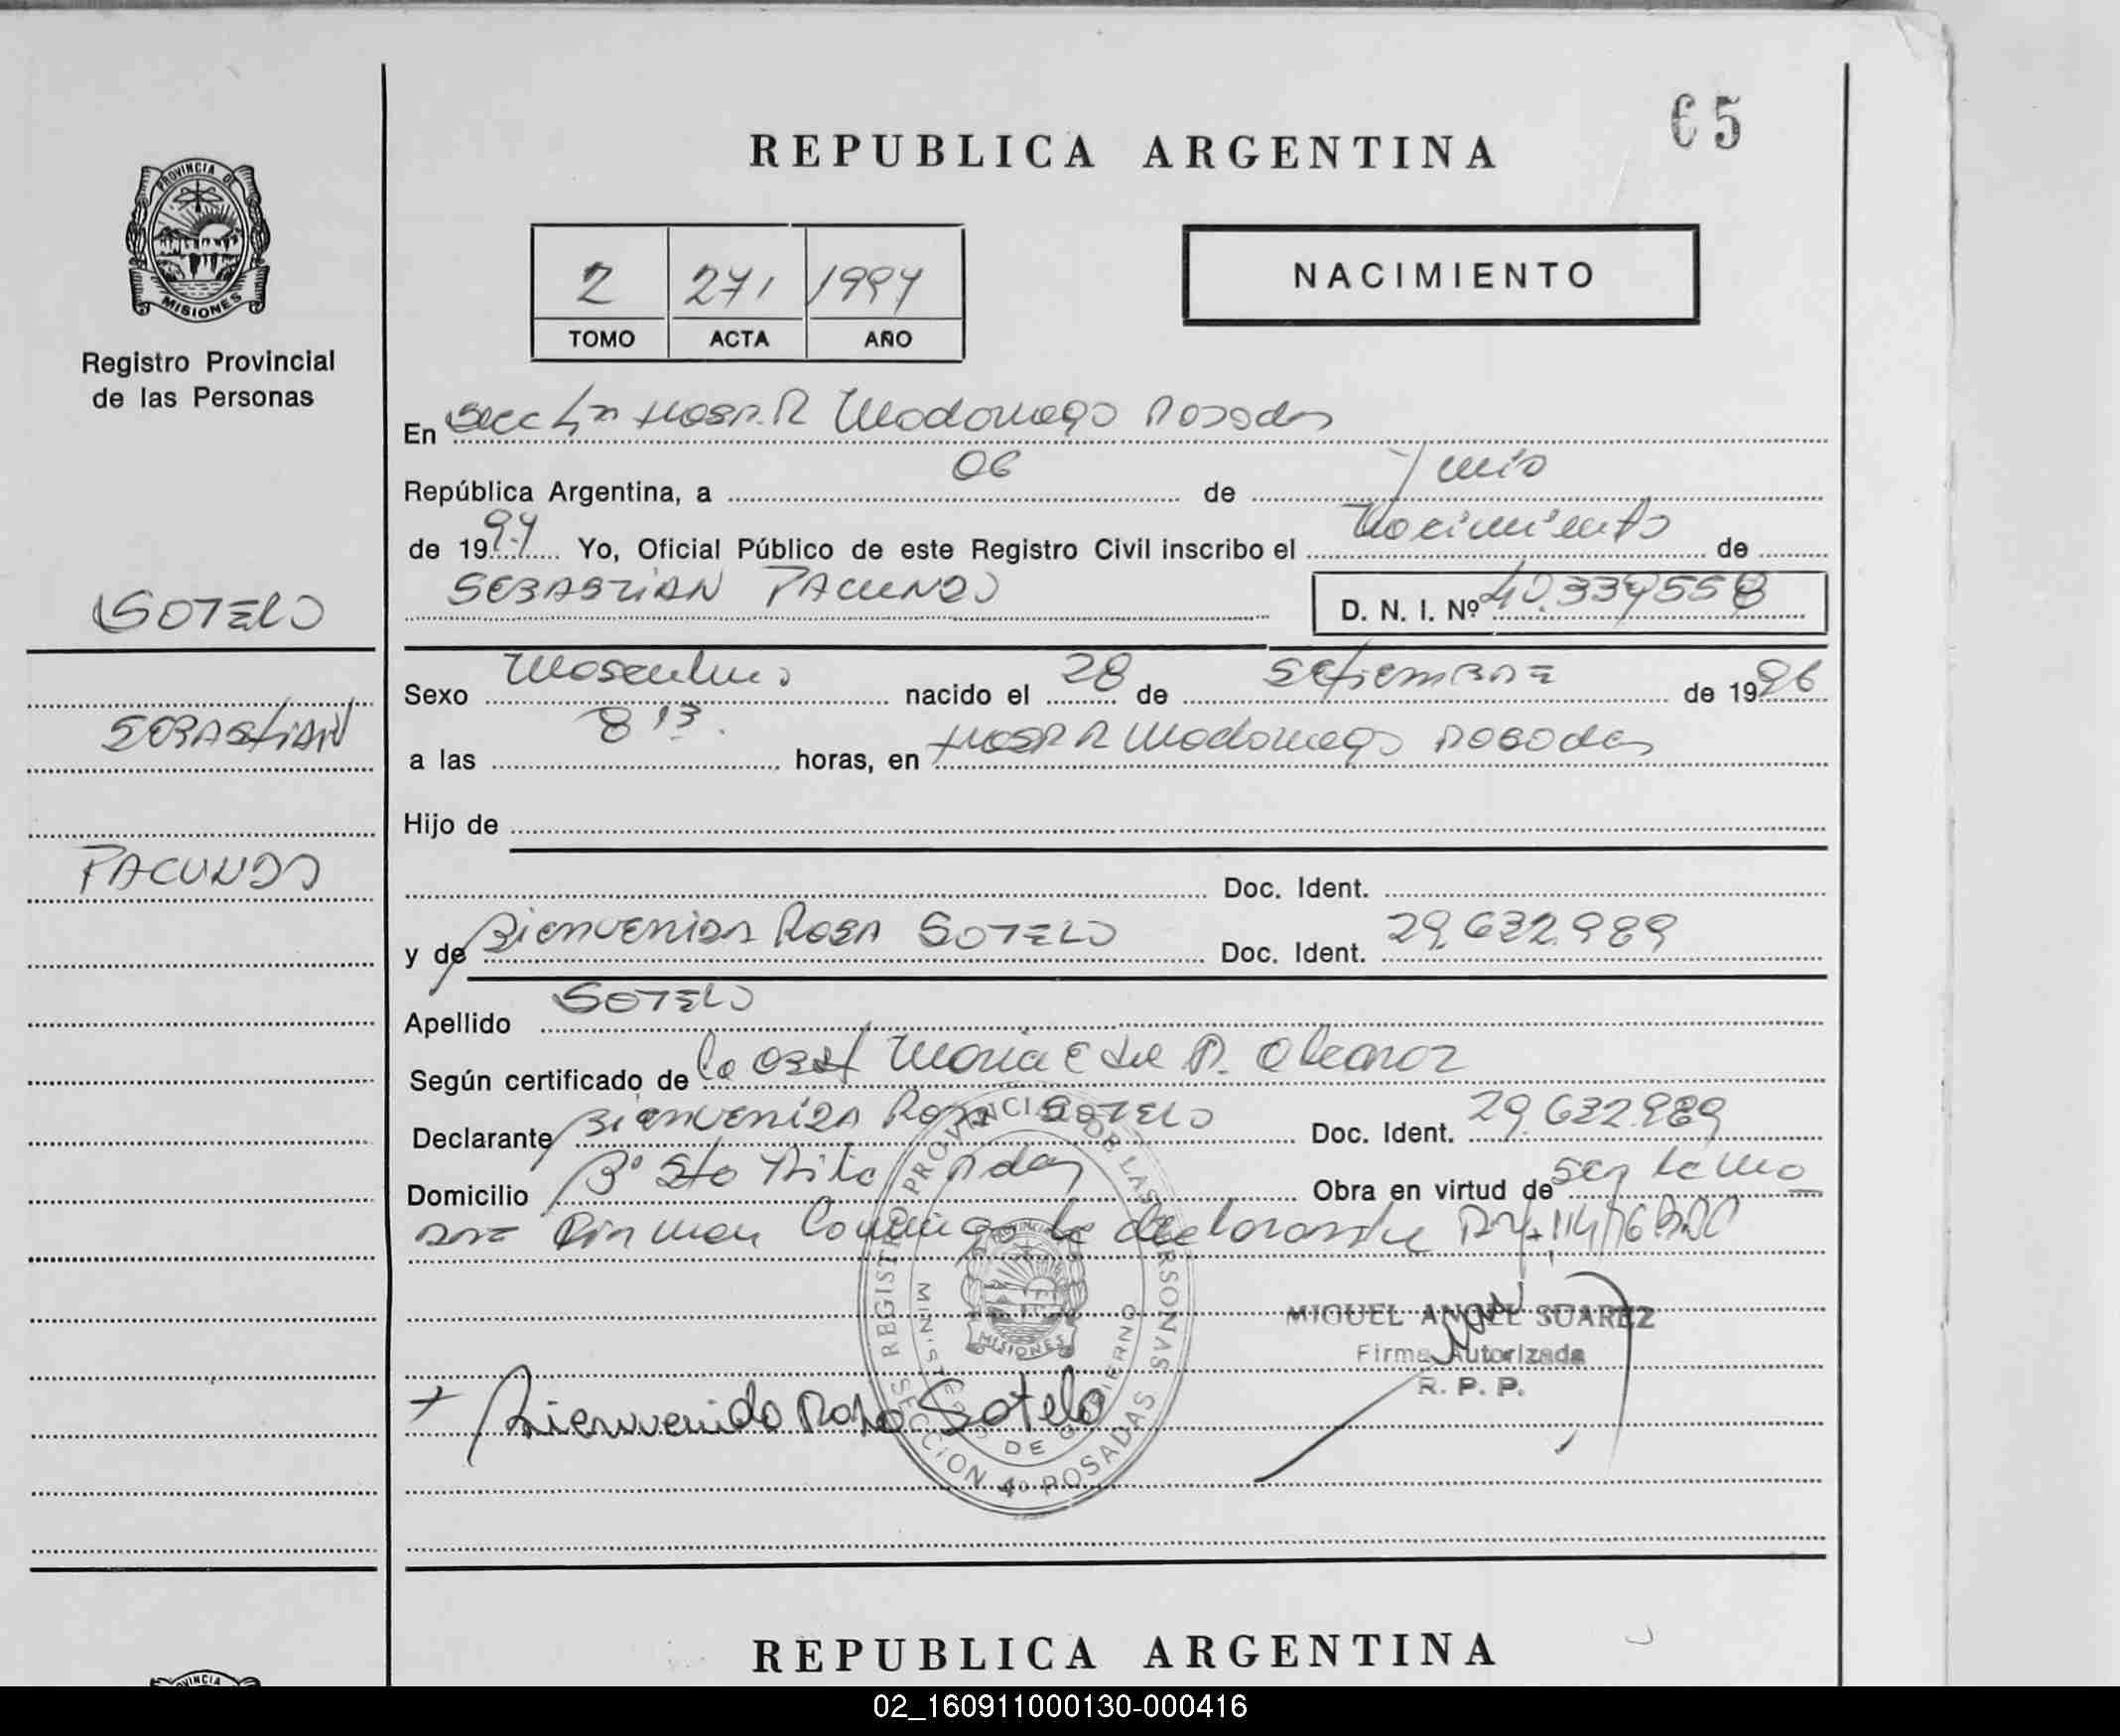 65
REPUBLICA ARGENTINA
PROVINCIA DE
MISIONES
Registro Provincial
de las Personas
2 271 1997
TOMO ACTA AÑO
NACIMIENTO
En Secc 4ta Hosp. R Madariaga Posadas
República Argentina, a 06 de Junio
de 1997 Yo, Oficial Público de este Registro Civil inscribo el Nacimiento de
SEBASTIAN FACUNDO D. N. I. Nº 40.339558
SOTELO
SEBASTIAN
FACUNDO
Sexo Masculino nacido el 28 de SEtiEmBRE de 1996
a las 8 13. horas, en Hosp R Madariaga Posadas
Hijo de
Doc. Ident.
y de BiEnVEniDA RosA SOTELO Doc. Ident. 29.632.989
Apellido SOTELO
Según certificado de la Obst Maria E de
Declarante BiEnVEniDA Rosa SOTELO Doc. Ident. 29.632.989
Domicilio Bº Sta Rita Pdas Obra en virtud de ser la ma
DRE Firman Conmigo la declarante
MIGUEL ANGEL SUAREZ
Firma Autorizada
R. P. P.
Bienvenida Rosa Sotelo
REGISTRO PROVINCIAL DE LAS PERSONAS
MINISTERIO DE GOBIERNO
MISIONES
SECCION 4º POSADAS
REPUBLICA ARGENTINA
02_160911000130-000416